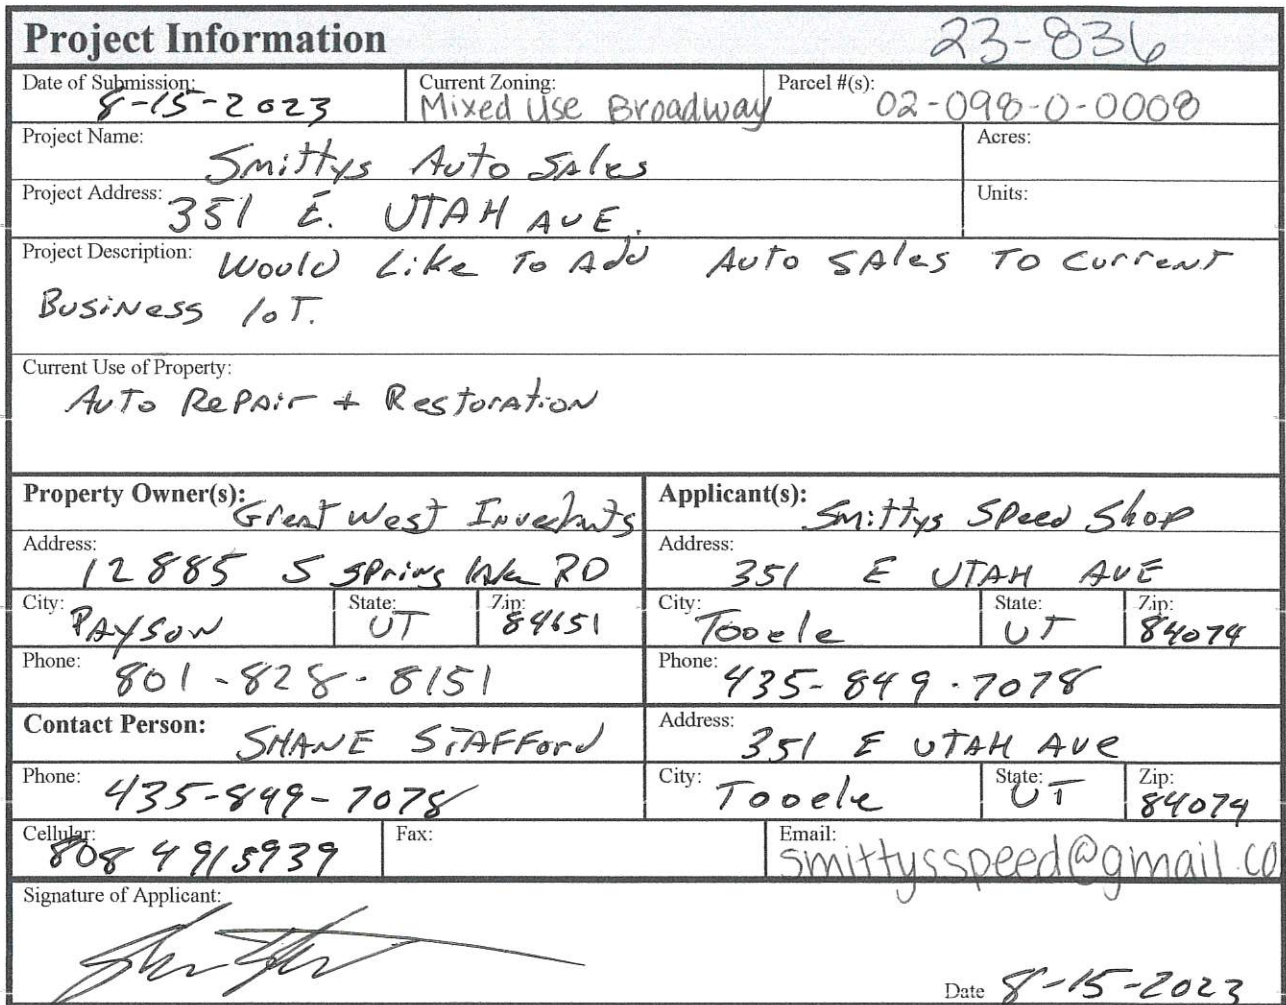 Project Information 23-836
Date of Submission: 8-15-2023 Current Zoning: Mixed Use Broadway Parcel #(s): 02-098-0-0008
Project Name: Smittys Auto Sales Acres:
Project Address: 351 E. UTAH AVE. Units:
Project Description: Would Like To Add Auto SAles TO Current
Business loT.
Current Use of Property:
AuTo RePAir + RestorAtion
Property Owner(s): Great West Applicant(s): Smittys SPeed Shop
Address: 12885 S SPring RD Address: 351 E UTAH AVE
City: PAYSON State: UT Zip: 84651 City: Tooele State: UT Zip: 84074
Phone: 801-828-8151 Phone: 435-849-7078
Contact Person: SHANE STAFFord Address: 351 E UTAH AVE
Phone: 435-849-7078 City: Tooele State: UT Zip: 84074
Cellular: 808 4915939 Fax: Email: smittysspeed@gmail.co
Signature of Applicant:
Date 8-15-2023